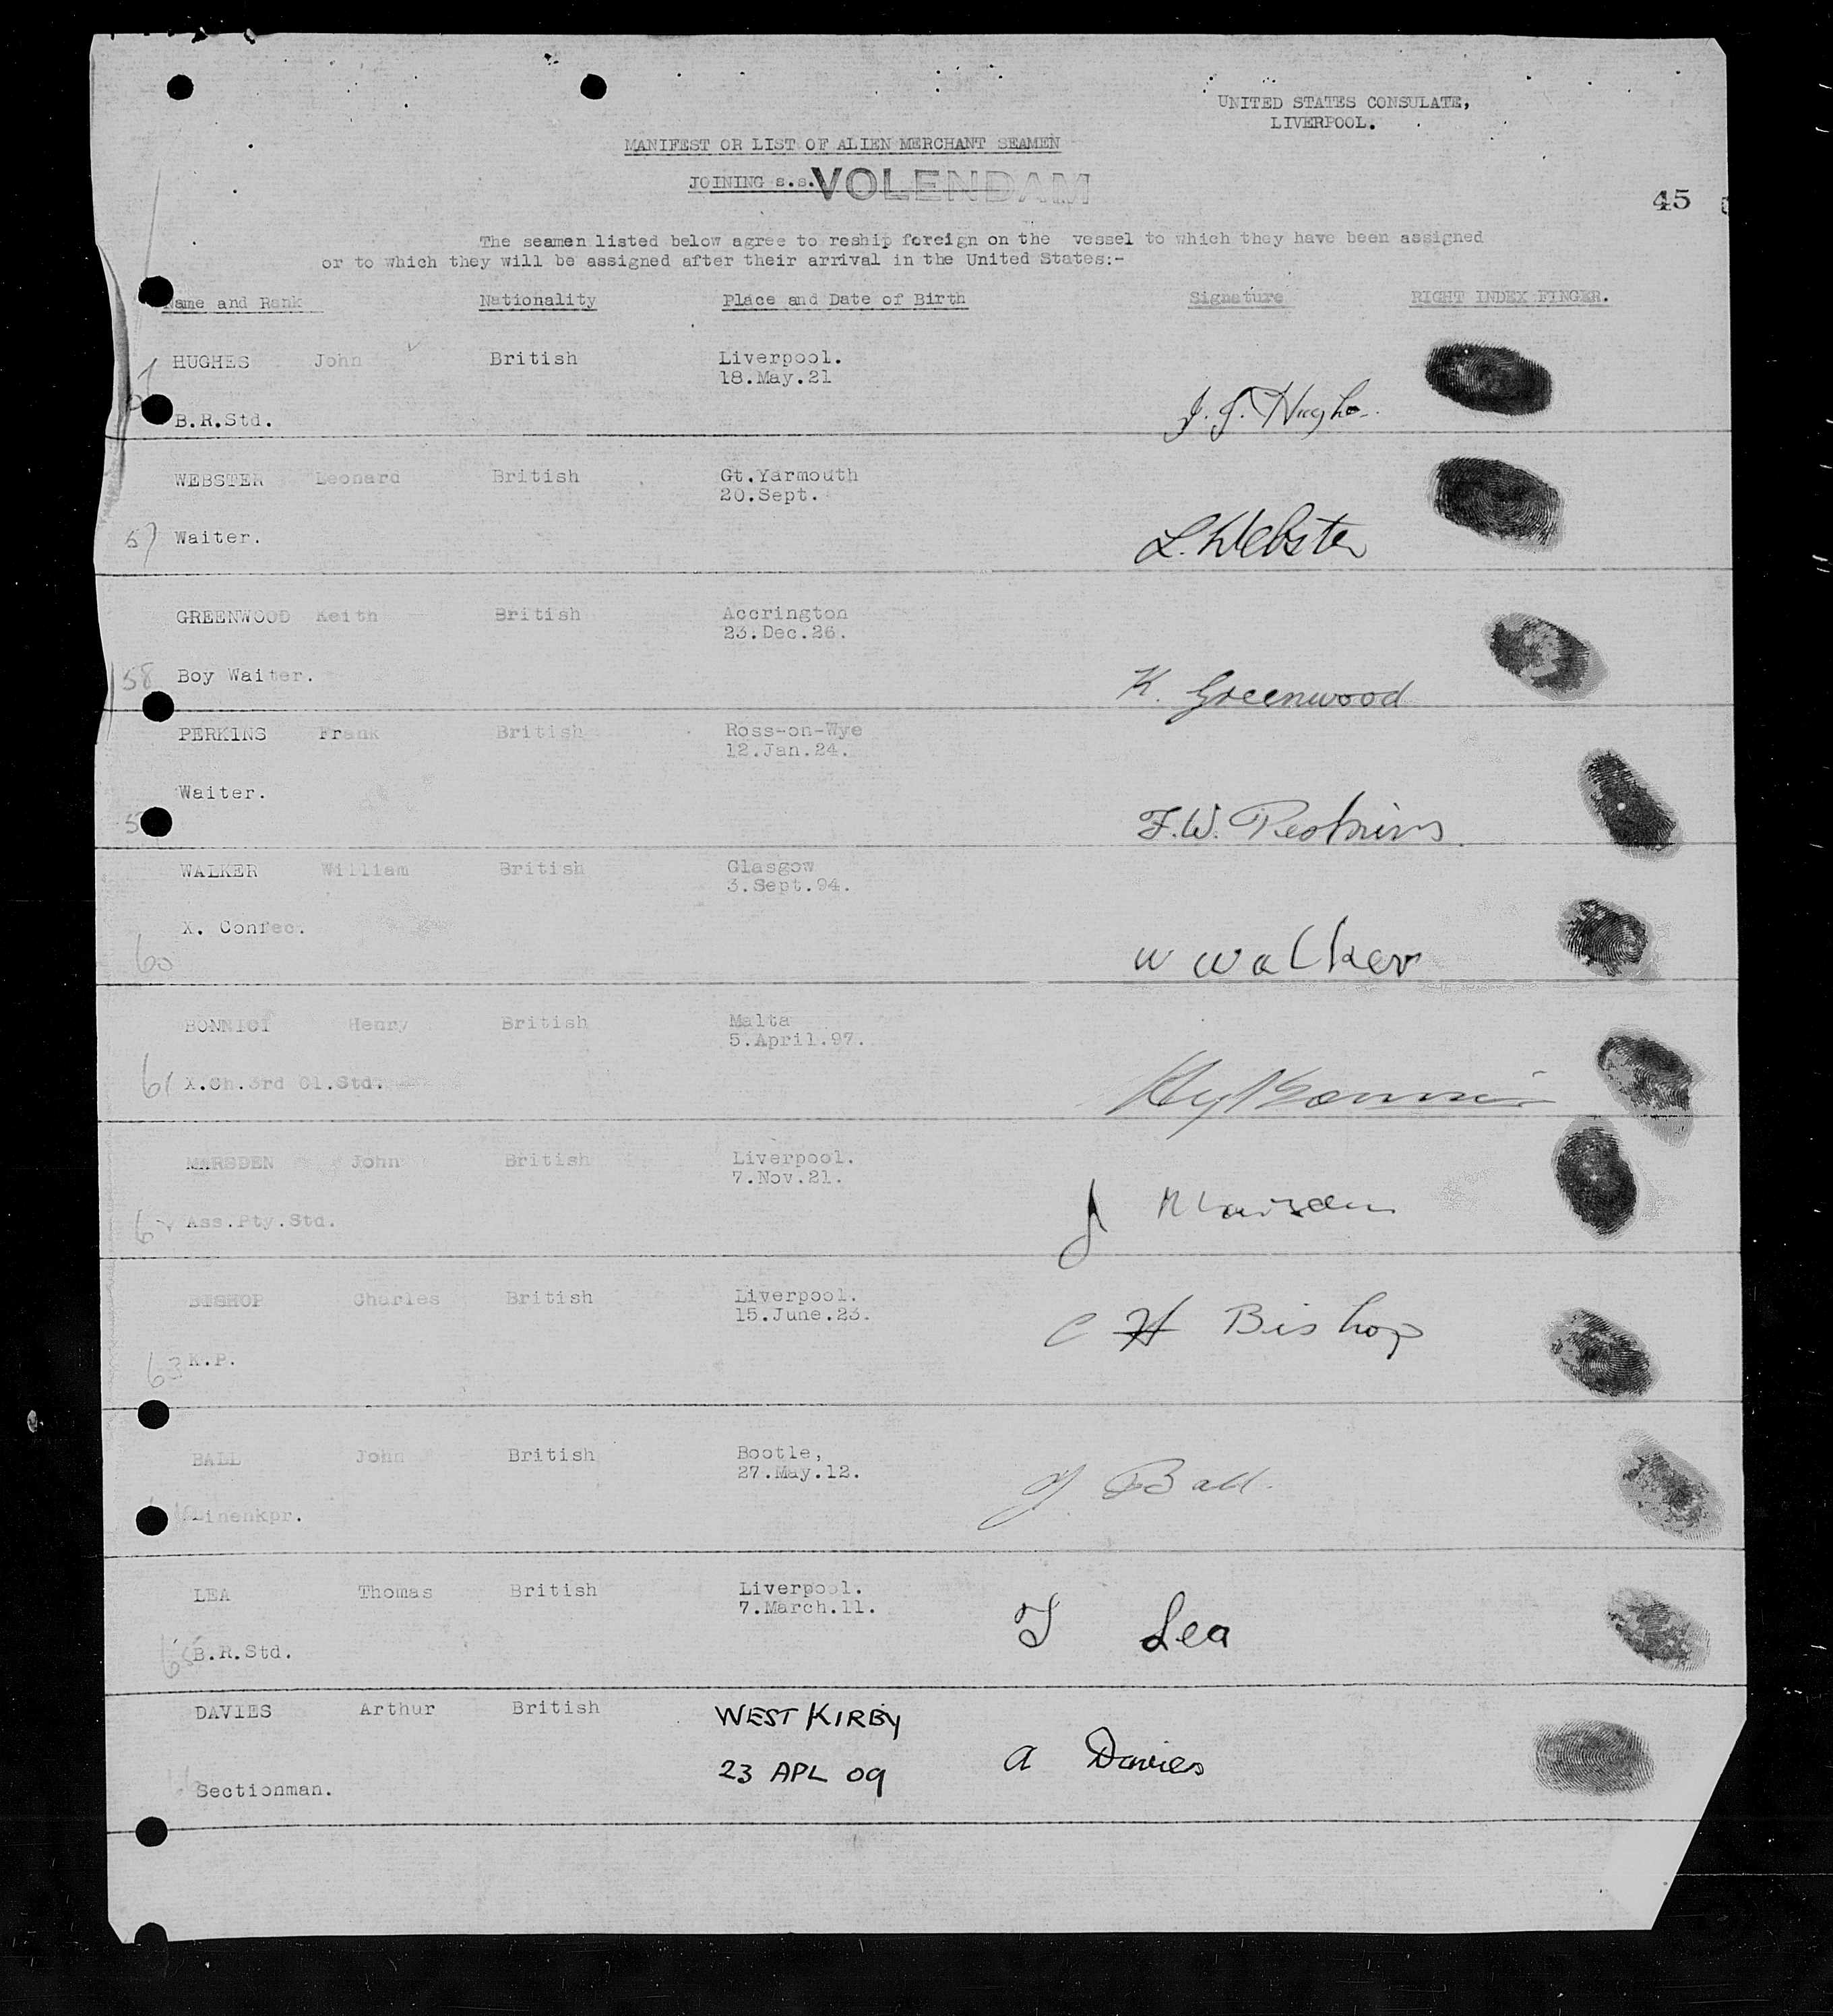 UNITED STATES CONSULATE,
LIVERPOOL.
MANIFEST OR LIST OF ALIEN MERCHANT SEAMEN
JOINING s.s. VOLENDAM
45
The seamen listed below agree to reship foreign on the vessel to which they have been assigned
or to which they will be assigned after their arrival in the United States:-
Name and Rank Nationality Place and Date of Birth Signature RIGHT INDEX FINGER.
HUGHES John British Liverpool.
18.May.21
J. J. Hughes
B.R.Std.
WEBSTER Leonard British Gt.Yarmouth
20.Sept.
57 Waiter. L. Webster
GREENWOOD Keith British Accrington
23.Dec.26.
58 Boy Waiter. K. Greenwood
PERKINS Frank British Ross-on-Wye
12.Jan.24.
Waiter.
F.W. Perkins
WALKER William British Glasgow
3.Sept.94.
X. Confec.
60 W Walker
BONNICI Henry British Malta
5.April.97.
61 X.Ch.3rd Cl.Std. Hy Bonnici
MARSDEN John British Liverpool.
7.Nov.21.
62 Ass.Pty.Std. J Marsden
BISHOP Charles British Liverpool.
15.June.23.
C H Bishop
63 K.P.
BALL John British Bootle,
27.May.12.
J Ball.
Linenkpr.
LEA Thomas British Liverpool.
7.March.11.
T Lea
65 B.R.Std.
DAVIES Arthur British WEST KIRBY
A Davies
23 APL 09
Sectionman.